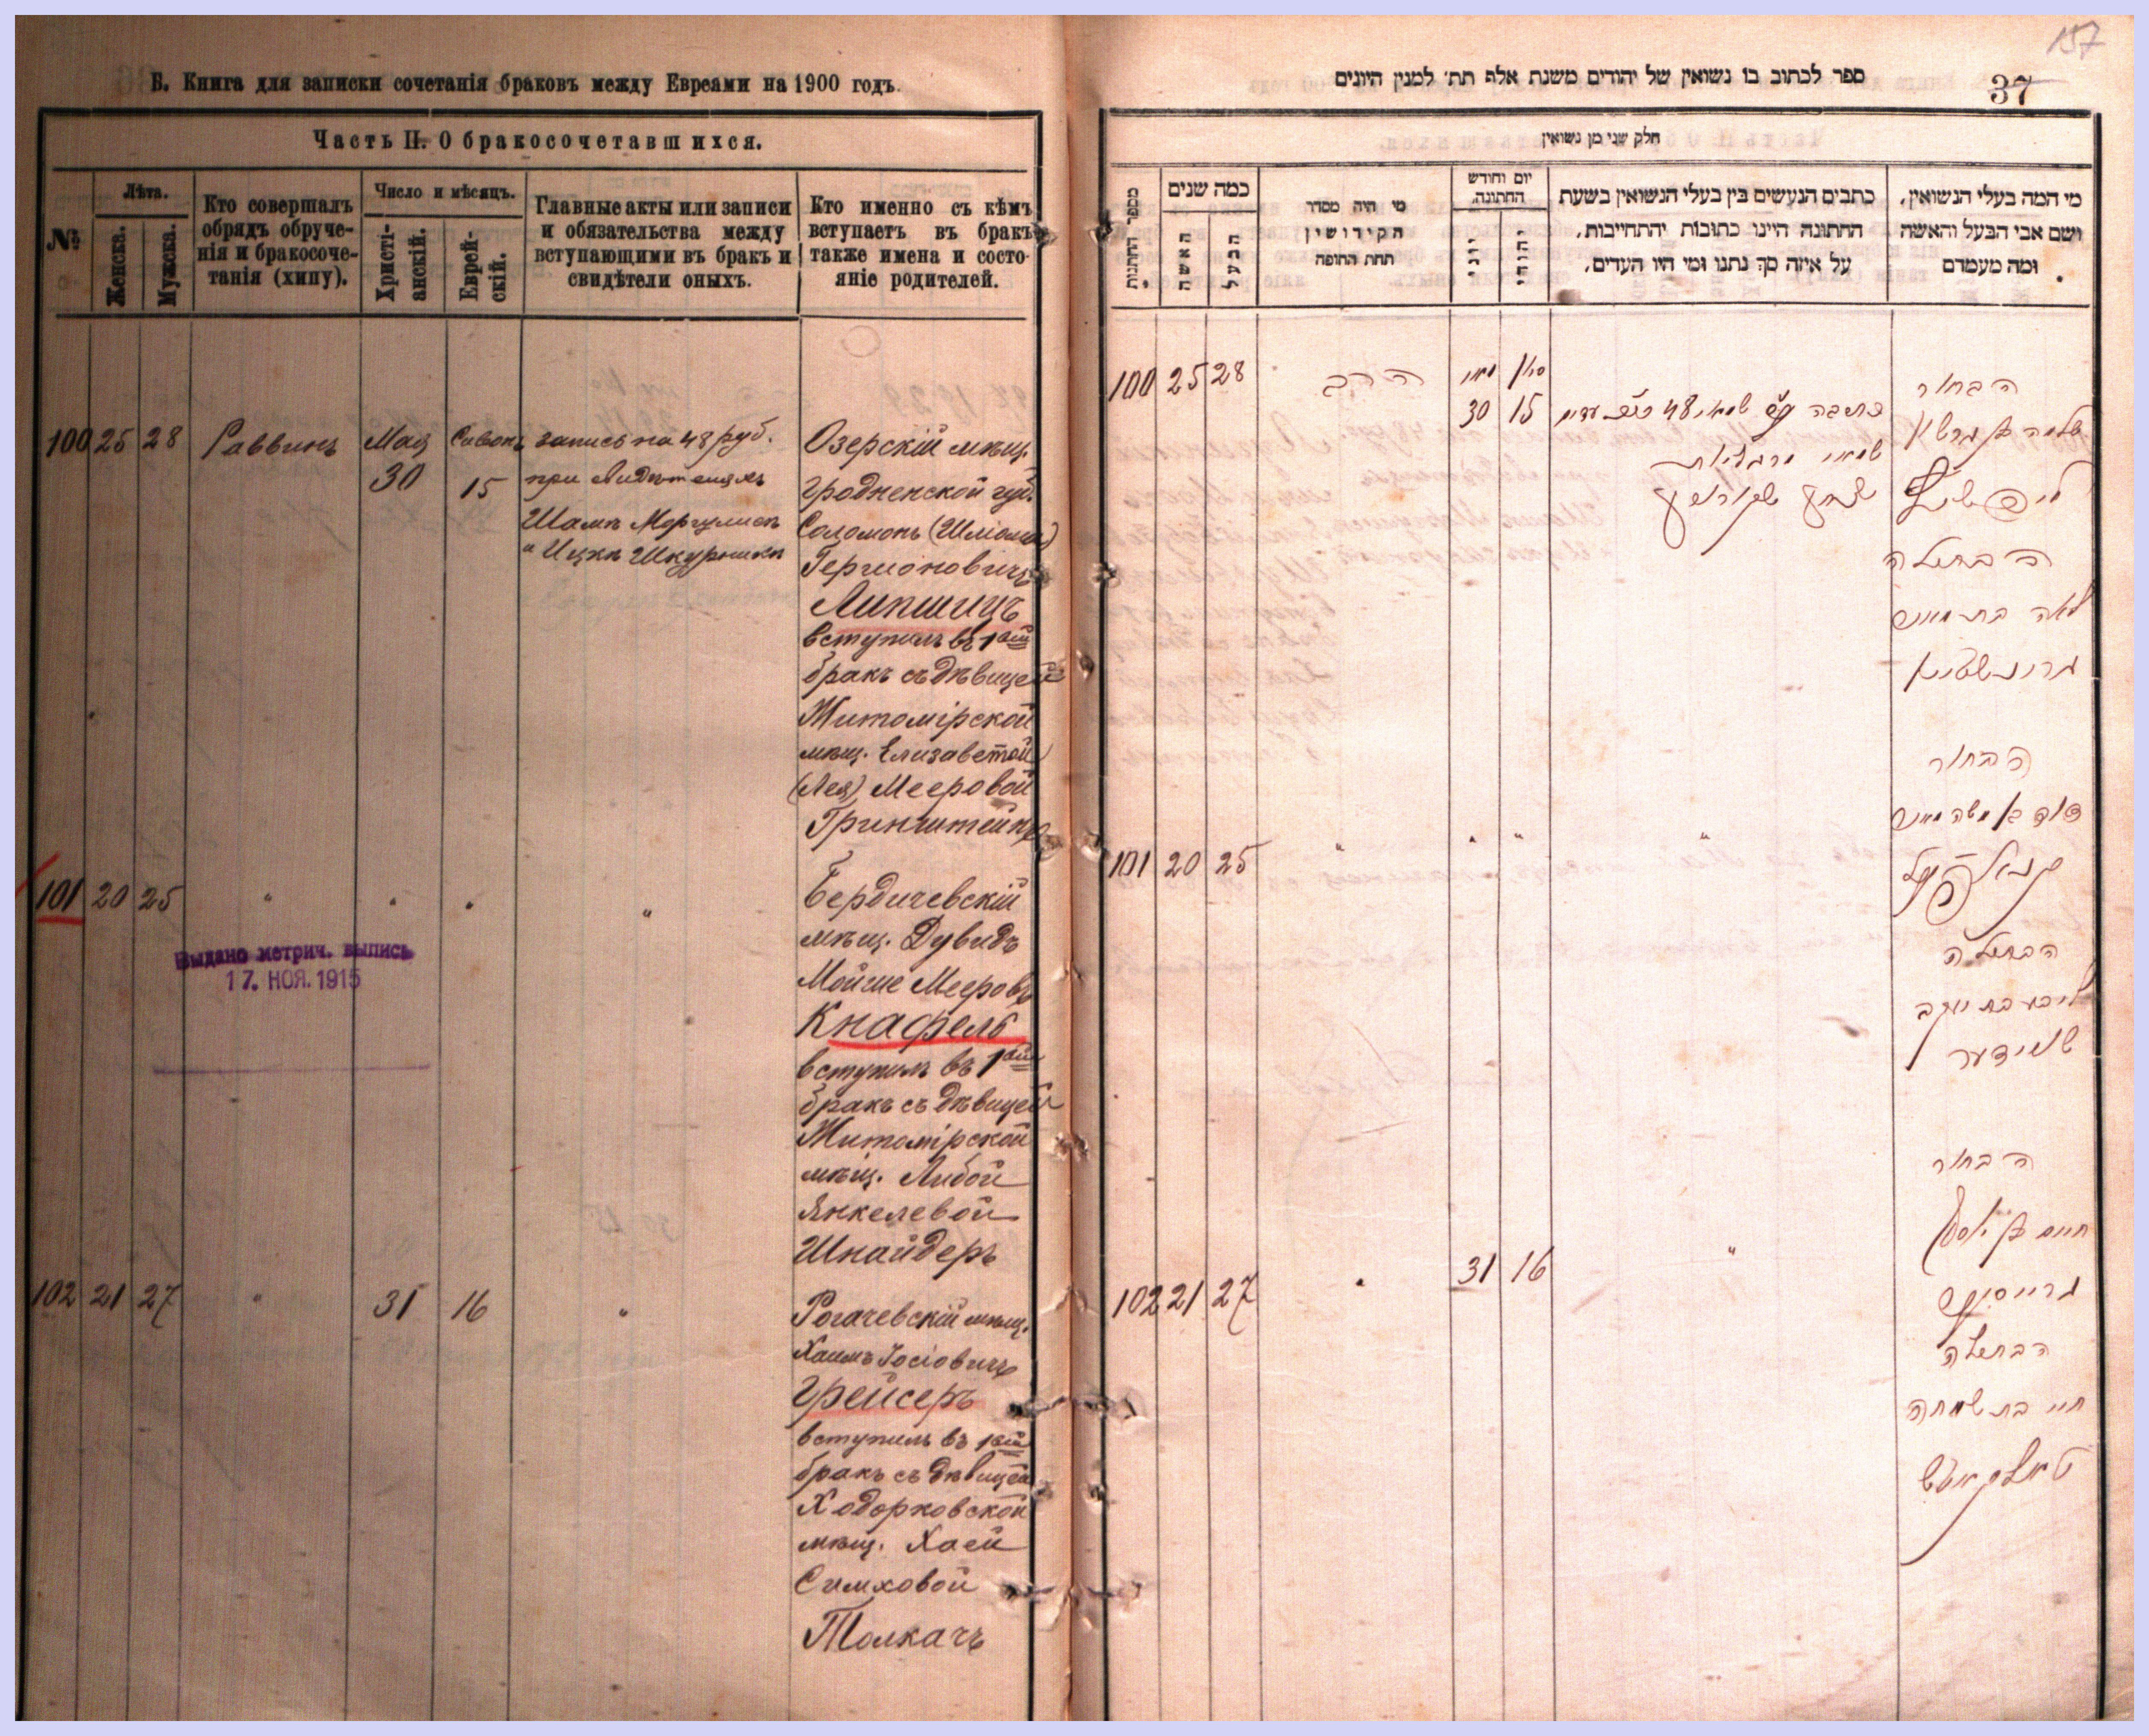 Б. Книга для записки сочетанія браковъ между Евреами на 1900 годъ.
Часть II. О бракосочетавшихся.
№
Лѣта.
Женска.
Мужска.
Кто совершалъ
обрядъ обруче-
нія и бракосоче-
танія (хипу).
Число и мѣсяцъ.
Христі-
анскій.
Еврей-
скій.
Главные акты или записи
и обязательства между
вступающими въ бракъ и
свидѣтели оныхъ.
Кто именно съ кѣмъ
вступаетъ въ бракъ
также имена и состо-
яніе родителей.
100 25 28 Раввинъ Мая 30 Сивонъ 15
запись на 48 руб.
при свидѣтеляхъ
Шамъ Моргулисъ
и Ицкъ Шкурникъ
Озерскій мѣщ.
Гродненской губ.
Соломонъ (Шліома)
Гершоновичъ
Липшицъ
вступилъ въ 1ый
бракъ съ дѣвицей
Житомірской
мѣщ. Елизаветой
(Лея) Мееровой
Гринштейнъ
101 20 25 " " " "
Бердичевскій
мѣщ. Дувидъ
Мойше Мееровъ
Кнафель
вступилъ въ 1ый
бракъ съ дѣвицей
Житомірской
мѣщ. Либой
Янкелевой
Шнайдеръ
Выдано метрич. выпись
17. НОЯ. 1915
102 21 27 " 31 16 "
Рогачевскій мѣщ.
Хаимъ Іосіовичъ
Грейсеръ
вступилъ въ 1ый
бракъ съ дѣвицей
Ходорковской
мѣщ. Хаей
Симховой
Толкачъ
157
37
ספר לכתוב בו נשואין של יהודים משנת אלף תת׳ למנין היונים
חלק שני מן נשואין
מספר החתנות
כמה שנים
האשה
הבעל
מי היה מסדר
הקידושין
תחת החופה
יום וחודש
החתונה
יוני
יהודי
כתבים הנעשים בין בעלי הנשואין בשעת
החתונה היינו כתובות יהתחייבות,
על איזה סך נתנו ומי היו העדים,
מי המה בעלי הנשואין,
ושם אבי הבעל והאשה
ומה מעמדם
100 25 28 הרב מאי 30 סיון 15
הבחור
שלמה בן גרשון
ליפשיץ
הבתולה
לאה בת מאיר
גרינשטיין
101 20 25 " " " "
הבחור
דוד משה מאיר
קנאפעל
הבתולה
ליבע בת יעקב
שניידער
102 21 27 " 31 16 "
הבחור
חיים בן יוסף
גרייסער
הבתולה
חיי בת שמחה
טאלקאטש